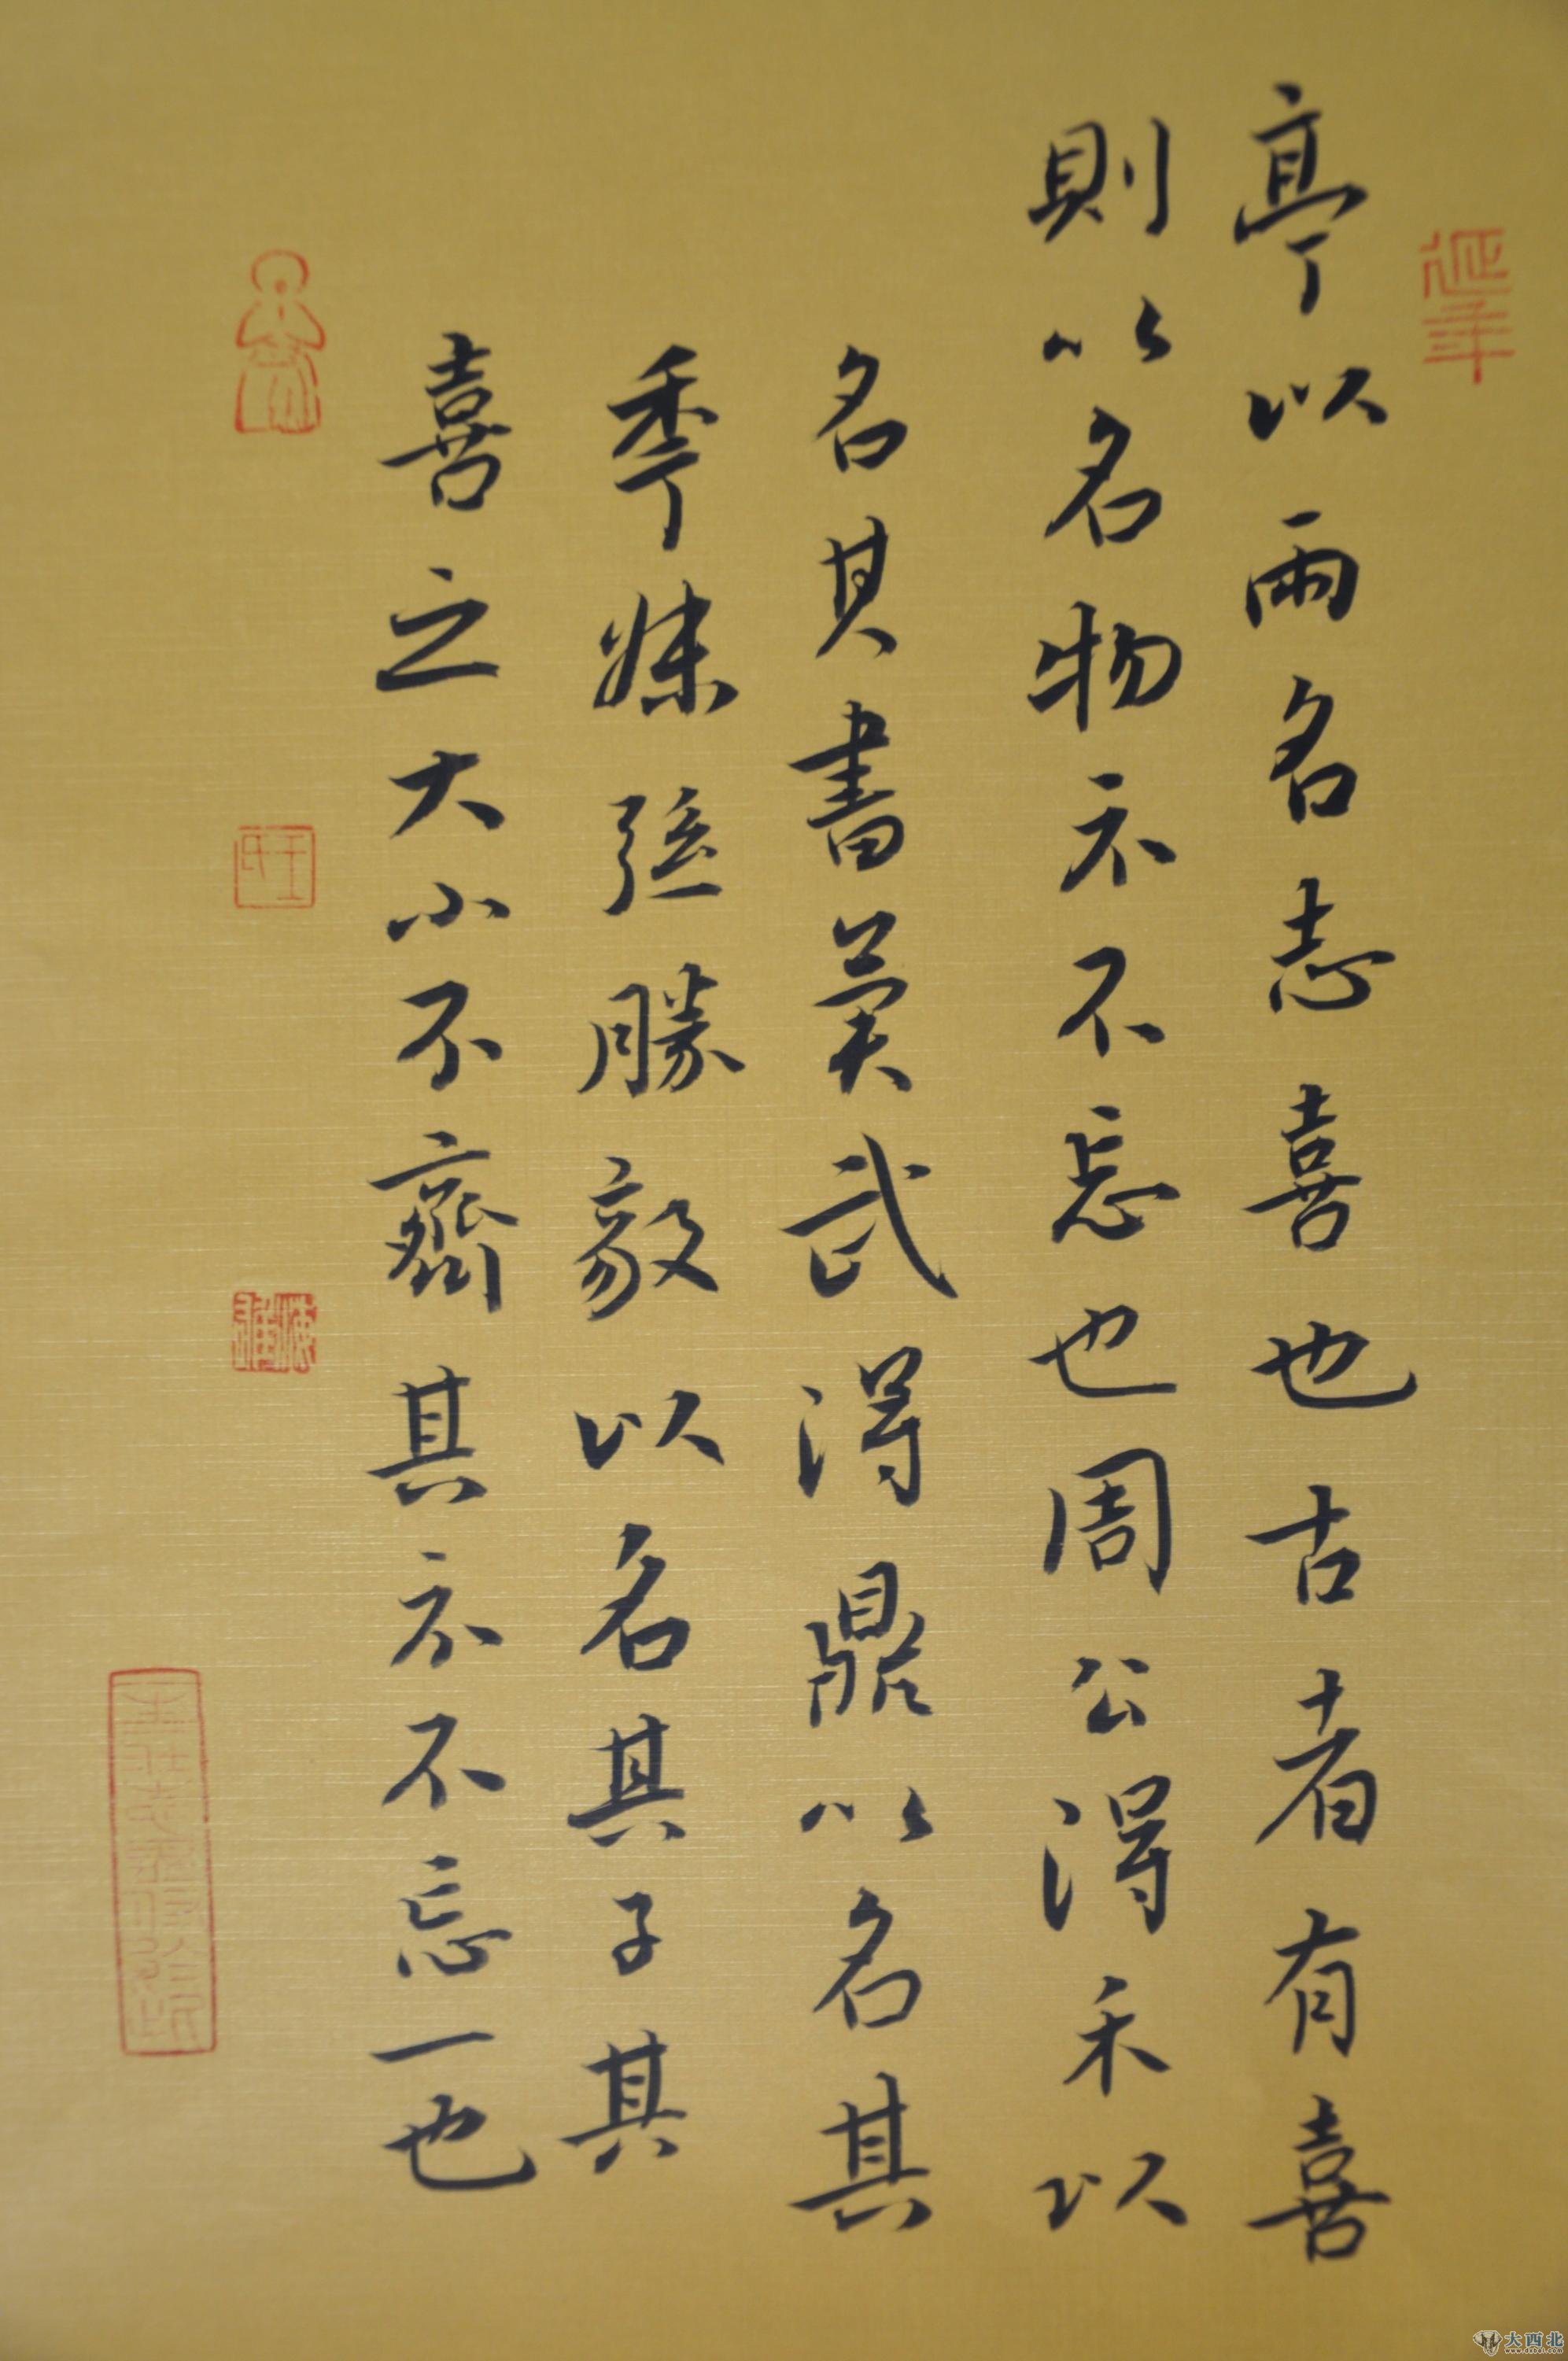 延年
亭以雨名志喜也古者有喜
則以名物示不忘也周公得禾以
名其書漢武得鼎以名其
秊叔孫勝敵以名其子其
喜之大小不齊其示不忘一也
王氏
大西北